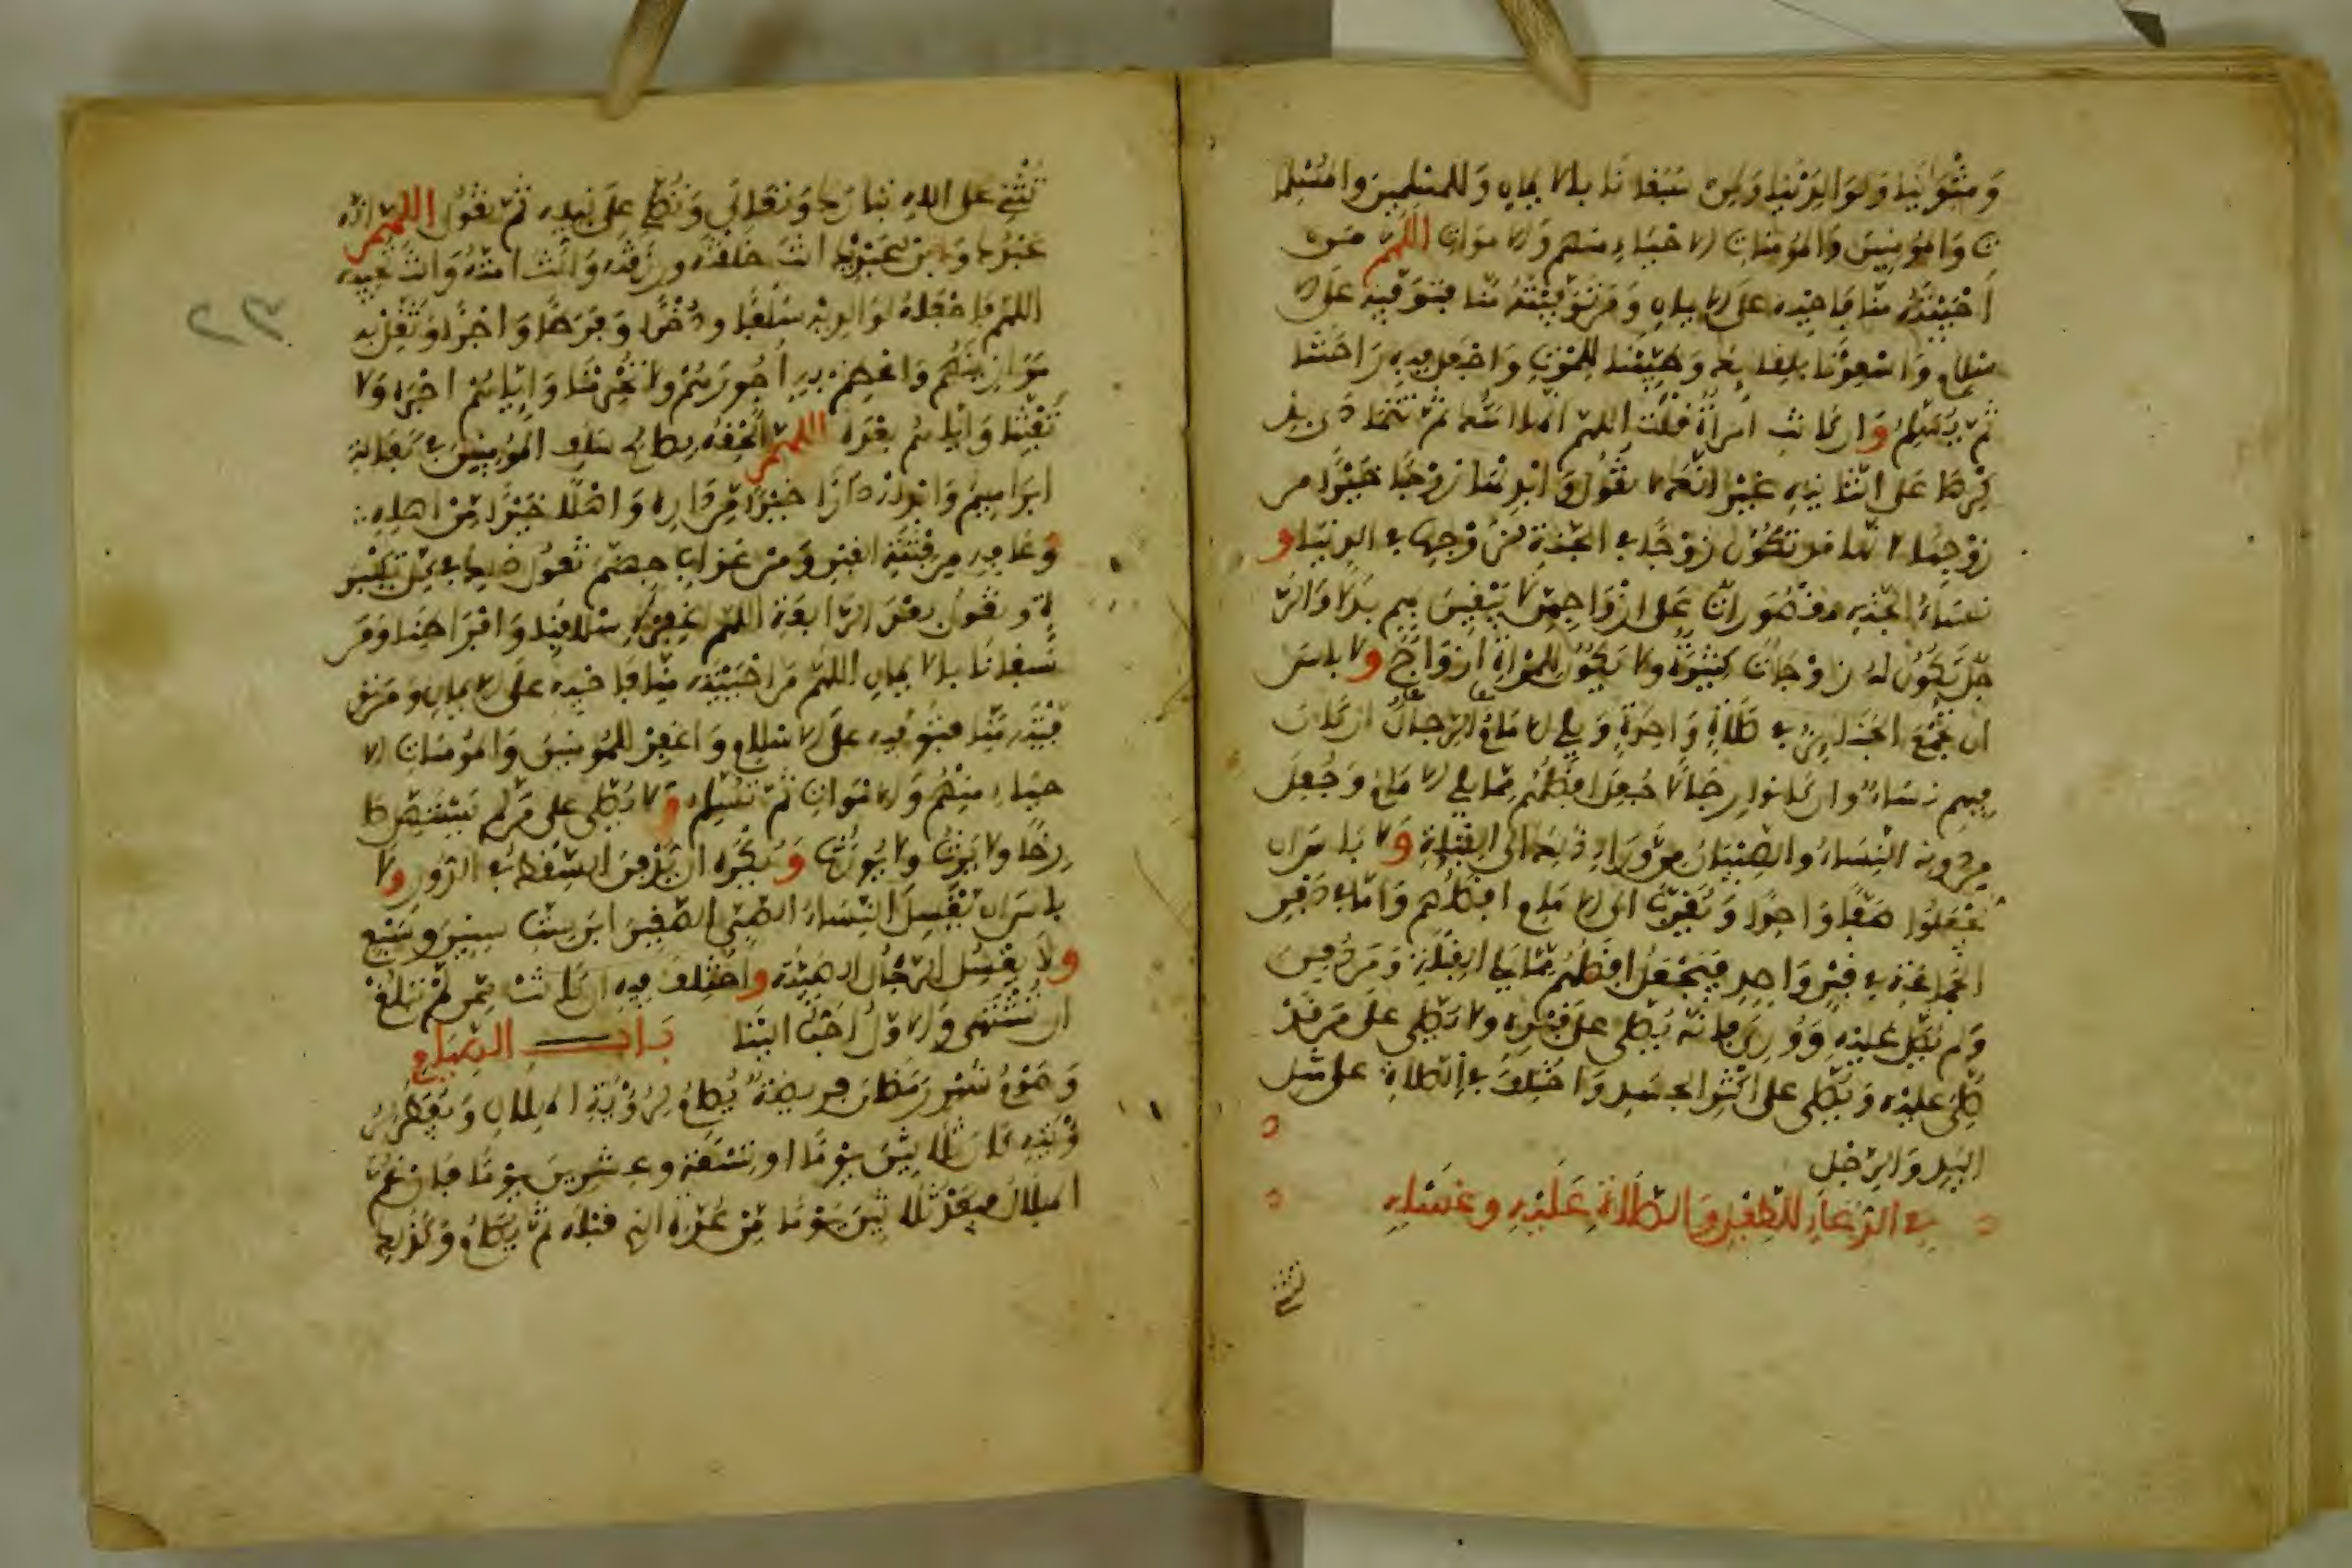 وَمَثْوَانَا وَلِوَالِدَيْنَا وَلِمَنْ سَبَقَنَا بِالايمَانِ وَلِلْمُسْلِمِينَ وَالْمُسْلِمَا
تِ وَالْمُؤْمِنِينَ وَالْمُؤْمِنَاتِ الاحْيَاءِ مِنْهُمْ وَالامْوَاتِ اللهُمَّ مَنْ
أَحْيَيْتَهُ مِنَّا فَأَحْيِهِ عَلَى الايمَانِ وَمَنْ تَوَفَّيْتَهُ مِنَّا فَتَوَفَّهِ عَلَى الا
سْلامِ وَأَسْعِدْنَا بِلِقَائِكَ وَطَيِّبْنَا لِلْمَوْتِ وَاجْعَلْ فِيهِ رَاحَتَنَا
ثُمَّ يُسَلِّمُ وَإِنْ كَانَتِ امْرَأَةً قُلْتَ اللهُمَّ إِنَّهَا أَمَتُكَ ثُمَّ تَتَمَادَى بِذِ
كْرِهَا عَلَى التَّأْنِيثِ غَيْرَ أَنَّكَ لا تَقُولُ وَأَبْدِلْهَا زَوْجًا خَيْرًا مِنْ
زَوْجِهَا لانَّهَا قَدْ تَكُونُ زَوْجًا فِي الْجَنَّةِ لِزَوْجِهَا فِي الدُّنْيَا وَ
نِسَاءُ الْجَنَّةِ مَقْصُورَاتٌ عَلَى أَزْوَاجِهِنَّ لا يَبْغِينَ بِهِمْ بَدَلًا وَالرَّ
جُلُ تَكُونُ لَهُ زَوْجَاتٌ كَثِيرَةٌ وَلا يَكُونُ لِلْمَرْأَةِ أَزْوَاجٌ وَلا بَأْسَ
أَنْ تُجْمَعَ الْجَنَائِزُ فِي صَلاةٍ وَاحِدَةٍ وَيَلِي الامَامَ الرِّجَالُ إِنْ كَانَ
فِيهِمْ نِسَاءٌ وَإِنْ كَانُوا رِجَالًا جُعِلَ أَفْضَلُهُمْ مِمَّا يَلِي الامَامَ وَجُعِلَ
مِنْ دُونِهِ النِّسَاءُ وَالصِّبْيَانُ مِنْ وَرَاءِ ذَلِكَ إِلَى الْقِبْلَةِ وَلا بَأْسَ أَنْ
يُجْعَلُوا صَفًّا وَاحِدًا وَيُقَرَّبُ إِلَى الامَامِ أَفْضَلُهُمْ وَأَمَّا دَفْنُ
الْجَمَاعَةِ فِي قَبْرٍ وَاحِدٍ فَيُجْعَلُ أَفْضَلُهُمْ مِمَّا يَلِي الْقِبْلَةَ وَمَنْ دُفِنَ
وَلَمْ يُصَلَّ عَلَيْهِ وَوُورِيَ فَإِنَّهُ يُصَلَّى عَلَى قَبْرِهِ وَلا يُصَلَّى عَلَى مَنْ قَدْ
صُلِّيَ عَلَيْهِ وَيُصَلَّى عَلَى أَكْثَرِ الْجَسَدِ وَاخْتُلِفَ فِي الصَّلاةِ عَلَى مِثْلِ
الْيَدِ وَالرِّجْلِ
فِي الدُّعَاءِ لِلطِّفْلِ وَالصَّلاةِ عَلَيْهِ وَغَسْلِهِ
تُثْنِي عَلَى اللهِ تَبَارَكَ وَتَعَالَى وَتُصَلِّي عَلَى نَبِيِّهِ ثُمَّ تَقُولُ اللهُمَّ إِنَّهُ
عَبْدُكَ وَابْنُ عَبْدِكَ أَنْتَ خَلَقْتَهُ وَرَزَقْتَهُ وَأَنْتَ أَمَتَّهُ وَأَنْتَ تُحْيِيهِ
اللهُمَّ فَاجْعَلْهُ لِوَالِدَيْهِ سَلَفًا وَذُخْرًا وَفَرَطًا وَأَجْرًا وَثَقِّلْ بِهِ
مَوَازِينَهُمْ وَأَعْظِمْ بِهِ أُجُورَهُمْ وَلا تَحْرِمْنَا وَإِيَّاهُمْ أَجْرَهُ وَلا
تَفْتِنَّا وَإِيَّاهُمْ بَعْدَهُ اللهُمَّ أَلْحِقْهُ بِصَالِحِ سَلَفِ الْمُؤْمِنِينَ فِي كَفَالَةِ
ابْرَاهِيمَ وَأَبْدِلْهُ دَارًا خَيْرًا مِنْ دَارِهِ وَأَهْلًا خَيْرًا مِنْ أَهْلِهِ
وَعَافِهِ مِنْ فِتْنَةِ الْقَبْرِ وَمِنْ عَذَابِ جَهَنَّمَ تَقُولُ ذَلِكَ فِي كُلِّ تَكْبِيرَ
ةٍ وَتَقُولُ بَعْدَ الرَّابِعَةِ اللهُمَّ اغْفِرْ لاسْلافِنَا وَأَفْرَاطِنَا وَمَنْ
سَبَقَنَا بِالايمَانِ اللهُمَّ مَنْ أَحْيَيْتَهُ مِنَّا فَأَحْيِهِ عَلَى الايمَانِ وَمَنْ تَوَ
فَّيْتَهُ مِنَّا فَتَوَفَّهِ عَلَى الاسْلامِ وَاغْفِرْ لِلْمُؤْمِنِينَ وَالْمُؤْمِنَاتِ الا
حْيَاءِ مِنْهُمْ وَالامْوَاتِ ثُمَّ تُسَلِّمُ وَلا يُصَلَّى عَلَى مَنْ لَمْ يَسْتَهِلَّ صَا
رِخًا وَلا يَرِثُ وَلا يُورَثُ وَيُكْرَهُ أَنْ يُدْفَنَ السِّقْطُ فِي الدُّورِ وَلا
بَأْسَ أَنْ يُغَسِّلَ النِّسَاءُ الصَّبِيَّ الصَّغِيرَ ابْنَ سِتِّ سِنِينَ وَسَبْعٍ
وَلا يُغَسِّلُ الرِّجَالُ الصَّبِيَّةَ وَاخْتُلِفَ فِيهِ إِنْ كَانَتْ مِمَّنْ لَمْ تَبْلُغْ
أَنْ تُشْتَهَى وَالاوَّلُ أَحَبُّ إِلَيْنَا بَابُ الصِّيَامِ
وَصَوْمُ شَهْرِ رَمَضَانَ فَرِيضَةٌ يُصَامُ لِرُؤْيَةِ الْهِلالِ وَيُفْطَرُ لِرُ
ؤْيَتِهِ كَانَ ثَلاثِينَ يَوْمًا أَوْ تِسْعَةً وَعِشْرِينَ يَوْمًا فَإِنْ غُمَّ
الْهِلالُ فَيُعَدُّ ثَلاثِينَ يَوْمًا مِنْ غُرَّةِ الَّذِي قَبْلَهُ ثُمَّ يُصَامُ وَكَذَلِكَ